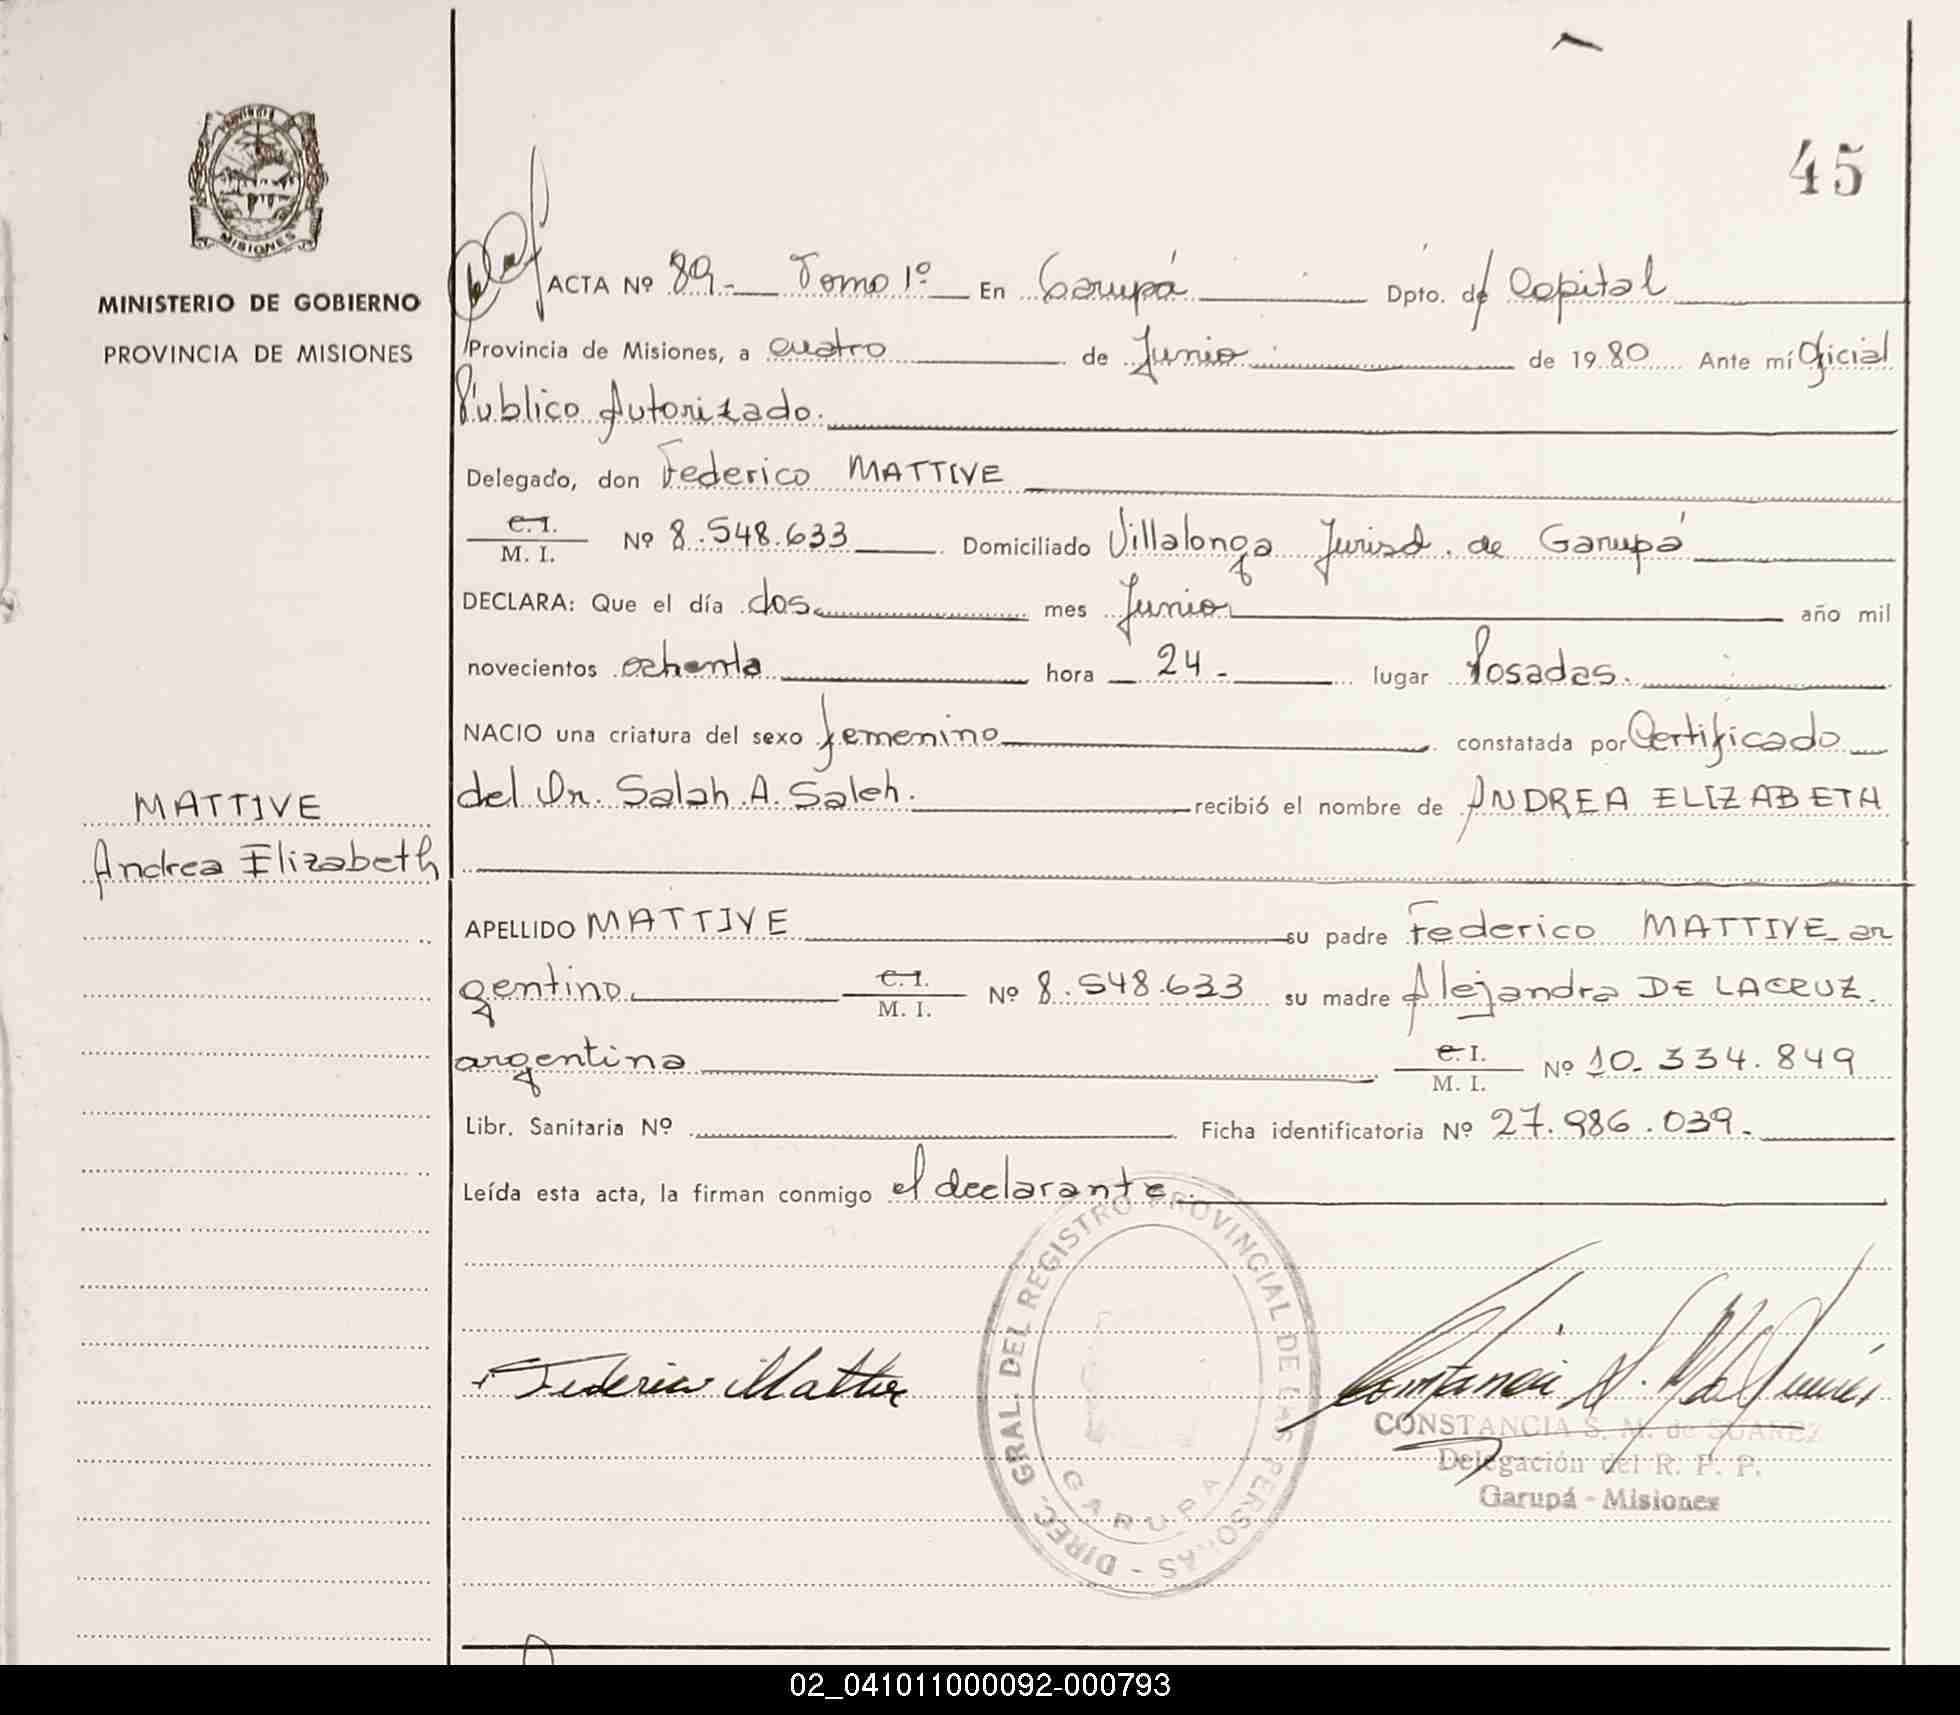 45
MINISTERIO DE GOBIERNO
PROVINCIA DE MISIONES
MISIONES
ACTA Nº 89.- Tomo 1º En Garupá Dpto. de Capital
Provincia de Misiones, a cuatro de Junio de 1980 Ante mí Oficial
Público Autorizado.
Delegado, don Federico MATTIVE
C.I.
M. I. Nº 8.548.633 Domiciliado Villalonga Jurisd. de Garupá
DECLARA: Que el día dos mes Junio año mil
novecientos ochenta hora 24.- lugar Posadas.
NACIO una criatura del sexo femenino constatada por Certificado
del Dr. Salah A. Saleh. recibió el nombre de ANDREA ELIZABETH
MATTIVE
Andrea Elizabeth
APELLIDO MATTIVE su padre Federico MATTIVE ar
gentino. C.I.
M. I. Nº 8.548.633 su madre Alejandra DE LACRUZ.
argentina C.I.
M. I. Nº 10.334.849
Libr. Sanitaria Nº Ficha identificatoria Nº 27.986.039.-
Leída esta acta, la firman conmigo el declarante.
DIREC. GRAL. DEL REGISTRO PROVINCIAL DE LAS PERSONAS -
GARUPA
Federico Mattive
CONSTANCIA S. M. de SUAREZ
Delegación del R. P. P.
Garupá - Misiones
02_041011000092-000793